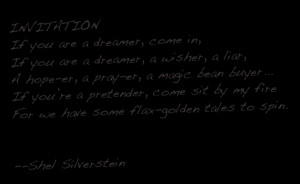 INVITATION
If you are a dreamer, come in,
If you are a dreamer, a wisher, a liar,
A hope-er, a pray-er, a magic bean buyer...
If you're a pretender, come sit by my fire
For we have some flax-golden tales to spin.
--Shel Silverstein